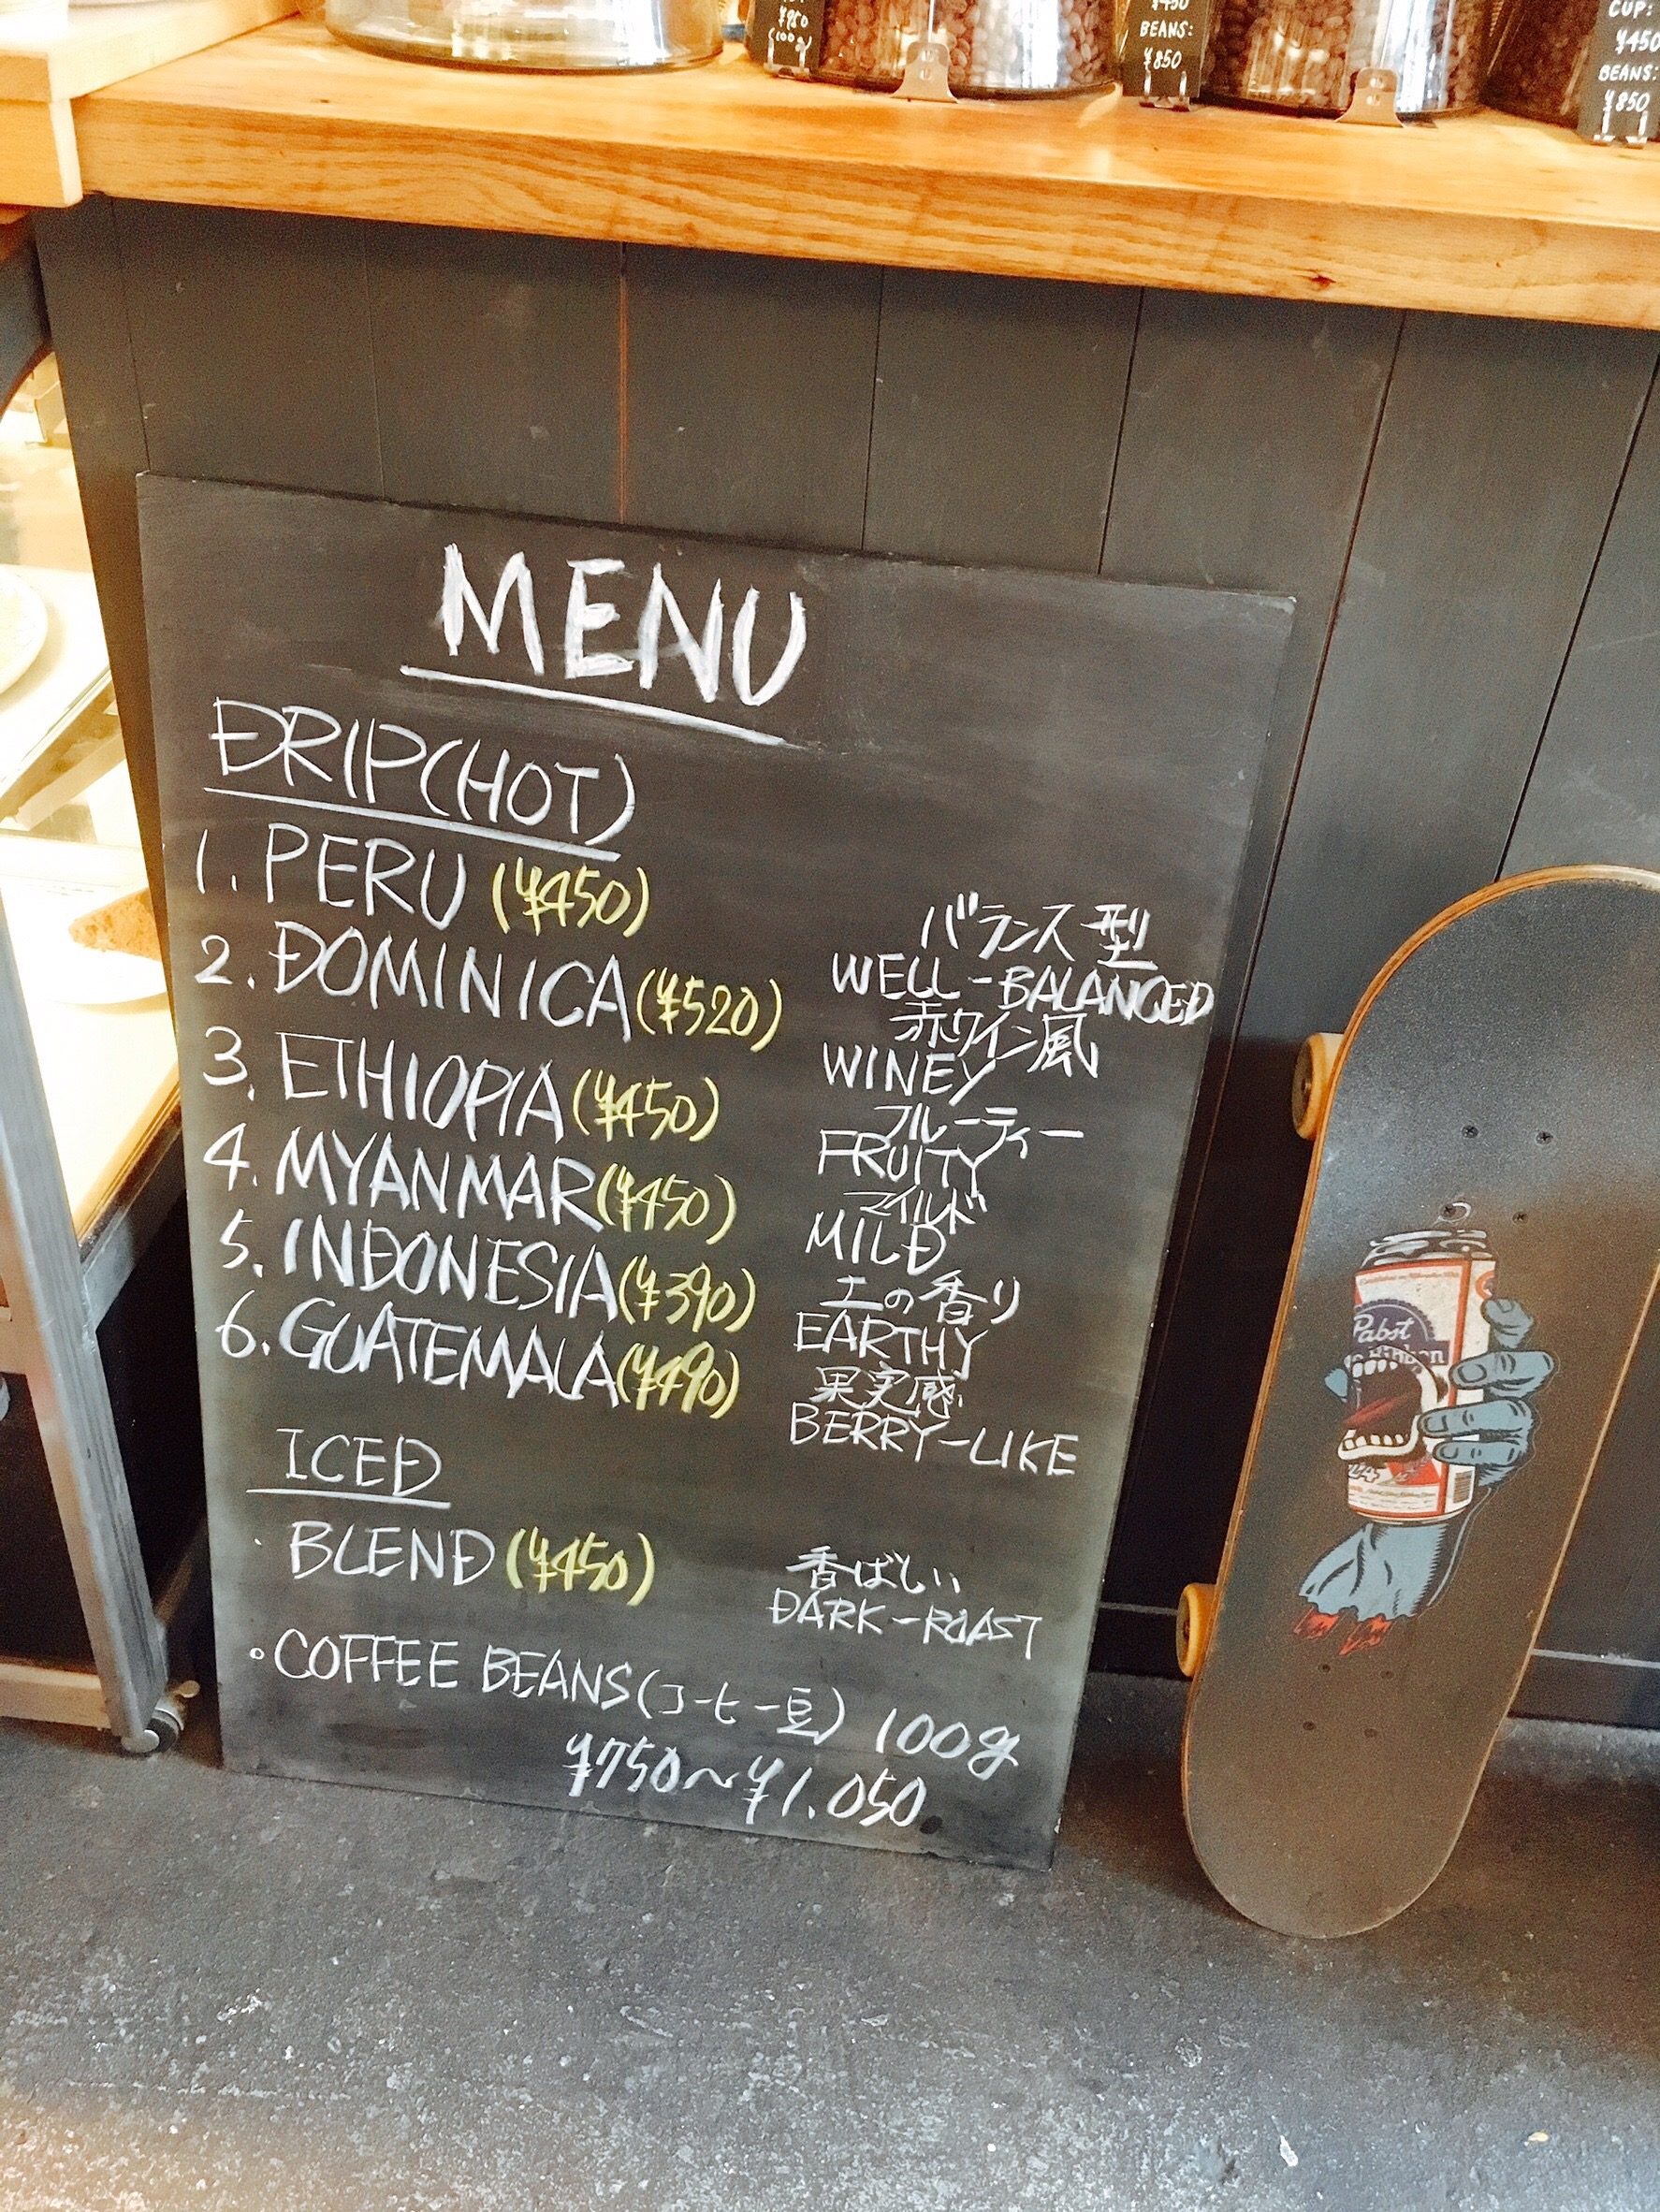 ¥950
(100g)
¥450
BEANS:
¥850
CUP:
¥450
BEANS:
¥850
MENU
DRIP(HOT)
1. PERU (¥450)
バランス型
WELL-BALANCED
2. DOMINICA (¥520)
赤ワイン風
WINEY
3. ETHIOPIA (¥450)
フルーティー
FRUITY
4. MYANMAR (¥450)
マイルド
MILD
5. INDONESIA (¥390)
土の香り
EARTHY
6. GUATEMALA (¥490)
果実感
BERRY-LIKE
ICED
・BLEND (¥450)
香ばしい
DARK-ROAST
。COFFEE BEANS(コーヒー豆) 100g
¥750~¥1.050
Pabst